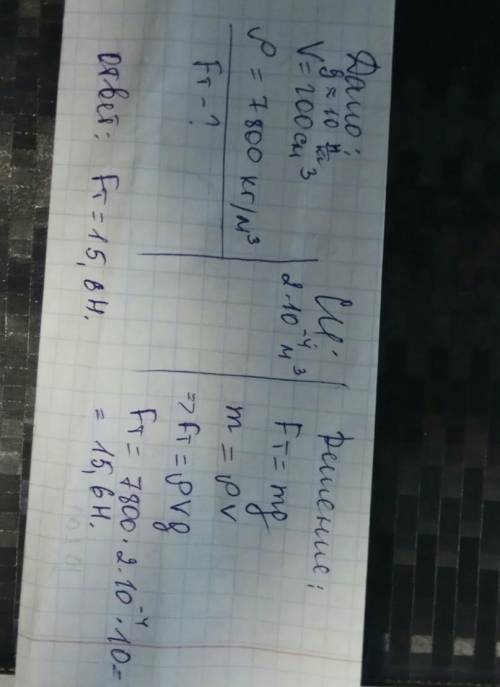 Дано:
g ≈ 10 Н/кг
V = 200 см³
ρ = 7800 кг/м³
Fт - ?
СИ:
2·10⁻⁴ м³
Решение:
Fт = mg
m = ρV
=> Fт = ρVg
Fт = 7800·2·10⁻⁴·10 =
= 15,6 Н.
Ответ: Fт = 15,6 Н.